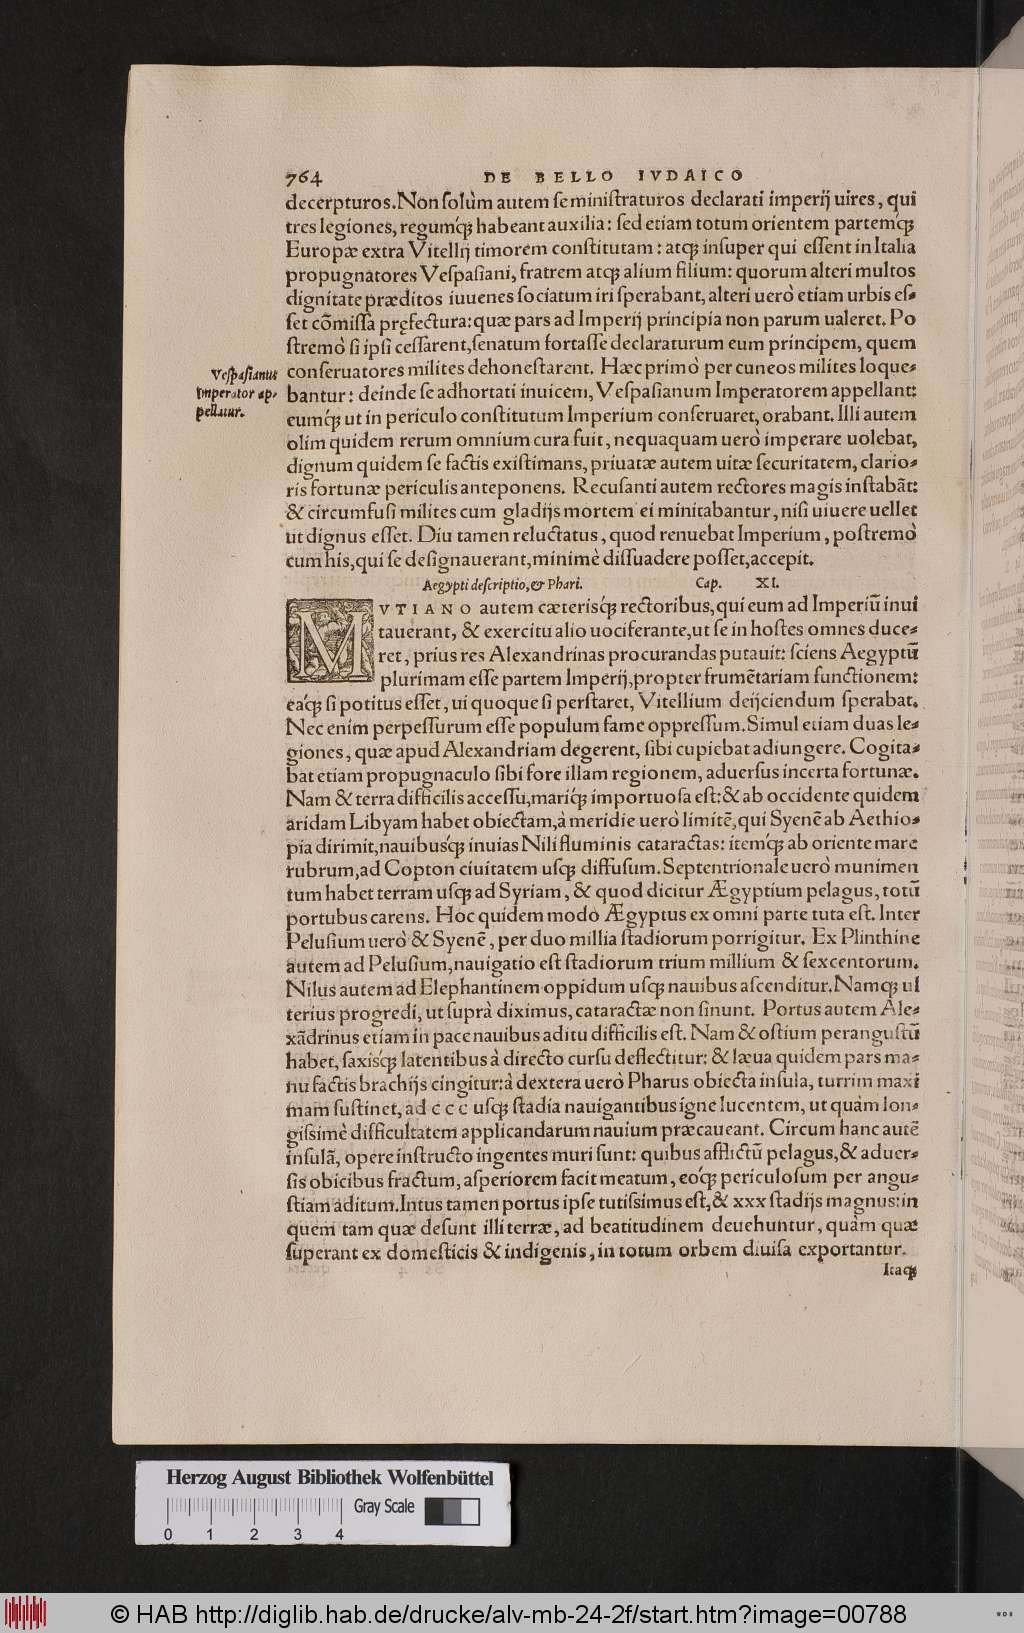 764 DE BELLO IVDAICO
decerpturos. Non ſolùm autem ſe miniſtraturos declarati imperij uires, qui
tres legiones, regumq́ꝫ habeant auxilia: ſed etiam totum orientem partemq́ꝫ
Europæ extra Vitellij timorem conſtitutam: atqꝫ inſuper qui eſſent in Italia
propugnatores Veſpaſiani, fratrem atqꝫ alium filium: quorum alteri multos
dignitate præditos iuuenes ſociatum iri ſperabant, alteri uerò etiam urbis eſ-
ſet cõmiſſa pręfectura: quæ pars ad Imperij principia non parum ualeret. Po
ſtremò ſi ipſi ceſſarent, ſenatum fortaſſe declaraturum eum principem, quem
conſeruatores milites dehoneſtarent. Hæc primò per cuneos milites loque-
bantur: deinde ſe adhortati inuicem, Veſpaſianum Imperatorem appellant:
eumq́ꝫ ut in periculo conſtitutum Imperium conſeruaret, orabant. Illi autem
olim quidem rerum omnium cura fuit, nequaquam uerò imperare uolebat,
dignum quidem ſe factis exiſtimans, priuatæ autem uitæ ſecuritatem, clario-
ris fortunæ periculis anteponens. Recuſanti autem rectores magis inſtabãt:
& circumfuſi milites cum gladijs mortem ei minitabantur, niſi uiuere uellet
ut dignus eſſet. Diu tamen reluctatus, quod renuebat Imperium, poſtremò
cum his, qui ſe deſignauerant, minimè diſſuadere poſſet, accepit.
Veſpaſianus
Imperator ap-
pellatur.
Aegypti deſcriptio, & Phari. Cap. XI.
MVTIANO autem cæterisq́ꝫ rectoribus, qui eum ad Imperiũ inui
tauerant, & exercitu alio uociferante, ut ſe in hoſtes omnes duce-
ret, prius res Alexandrinas procurandas putauit: ſciens Aegyptũ
plurimam eſſe partem Imperij, propter frumẽtariam functionem:
eaq́ꝫ ſi potitus eſſet, ui quoque ſi perſtaret, Vitellium deijciendum ſperabat.
Nec enim perpeſſurum eſſe populum fame oppreſſum. Simul etiam duas le-
giones, quæ apud Alexandriam degerent, ſibi cupiebat adiungere. Cogita-
bat etiam propugnaculo ſibi fore illam regionem, aduerſus incerta fortunæ.
Nam & terra difficilis acceſſu, mariq́ꝫ importuoſa eſt: & ab occidente quidem
aridam Libyam habet obiectam, à meridie uerò limitẽ, qui Syenẽ ab Aethio-
pia dirimit, nauibusq́ꝫ inuias Nili fluminis cataractas: itemq́ꝫ ab oriente mare
rubrum, ad Copton ciuitatem uſqꝫ diffuſum. Septentrionale uerò munimen
tum habet terram uſqꝫ ad Syriam, & quod dicitur Ægyptium pelagus, totũ
portubus carens. Hoc quidem modo Ægyptus ex omni parte tuta eſt. Inter
Peluſium uerò & Syenẽ, per duo millia ſtadiorum porrigitur. Ex Plinthine
autem ad Peluſium, nauigatio eſt ſtadiorum trium millium & ſexcentorum.
Nilus autem ad Elephantinem oppidum uſqꝫ nauibus aſcenditur. Namqꝫ ul
terius progredi, ut ſuprà diximus, cataractæ non ſinunt. Portus autem Ale-
xãdrinus etiam in pace nauibus aditu difficilis eſt. Nam & oſtium peranguſtũ
habet, ſaxisq́ꝫ latentibus à directo curſu deflectitur: & læua quidem pars ma-
nu factis brachijs cingitur: à dextera uerò Pharus obiecta inſula, turrim maxi
mam ſuſtinet, ad ccc uſqꝫ ſtadia nauigantibus igne lucentem, ut quàm lon-
giſsimè difficultatem applicandarum nauium præcaueant. Circum hanc autẽ
inſulã, opere inſtructo ingentes muri ſunt: quibus afflictũ pelagus, & aduer-
ſis obicibus fractum, aſperiorem facit meatum, eoq́ꝫ periculoſum per angu-
ſtiam aditum. Intus tamen portus ipſe tutiſsimus eſt, & xxx ſtadijs magnus: in
quem tam quæ deſunt illi terræ, ad beatitudinem deuehuntur, quàm quæ
ſuperant ex domeſticis & indigenis, in totum orbem diuiſa exportantur.
Itaqꝫ
Herzog August Bibliothek Wolfenbüttel
Gray Scale
0 1 2 3 4
© HAB http://diglib.hab.de/drucke/alv-mb-24-2f/start.htm?image=00788